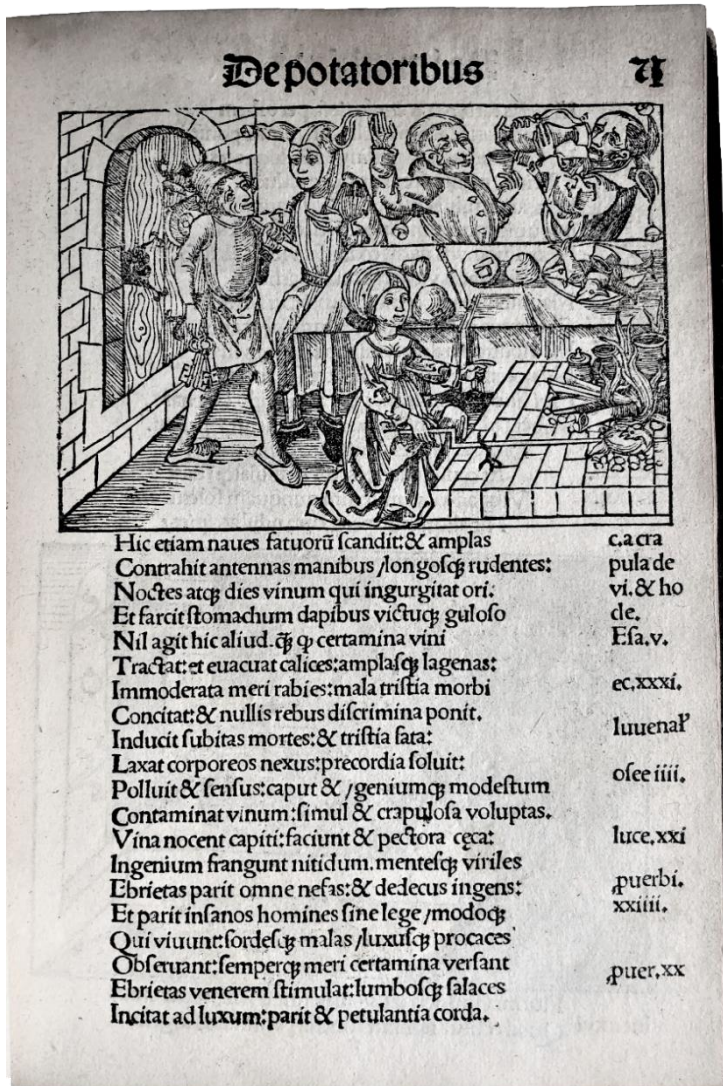 De potatoribus
Hic etiam naues fatuorū ſcandit:& amplas
Contrahit antennas manibus /longoſqꝫ rudentes:
Noctes atqꝫ dies vinum qui ingurgitat ori:
Et farcit ſtomachum dapibus victuqꝫ guloſo
Nil agit hic aliud. q̄ꝫ ꝙ certamina vini
Tractat:et euacuat calices:amplaſqꝫ lagenas:
Immoderata meri rabies:mala triſtia morbi
Concitat:& nullis rebus diſcrimina ponit.
Inducit ſubitas mortes:& triſtia fata:
Laxat corporeos nexus:precordia ſoluit:
Polluit & ſenſus:caput & /geniumqꝫ modeſtum
Contaminat vinum:ſimul & crapuloſa voluptas.
Vina nocent capiti:faciunt & pectora cęca:
Ingenium frangunt nitidum.menteſqꝫ viriles
Ebrietas parit omne nefas:& dedecus ingens:
Et parit inſanos homines ſine lege /modoqꝫ
Qui viuunt:ſordeſqꝫ malas /luxuſqꝫ procaces
Obſeruant:ſemperqꝫ meri certamina verſant
Ebrietas venerem ſtimulat:lumboſqꝫ ſalaces
Incitat ad luxum:parit & petulantia corda.
c.a cra
pula de
vi.& ho
cle.
Eſa.v.
ec.xxxi.
Iuuenaꝉ
oſee iiii.
luce.xxi
ꝓuerbi.
xxiiii.
ꝓuer.xx